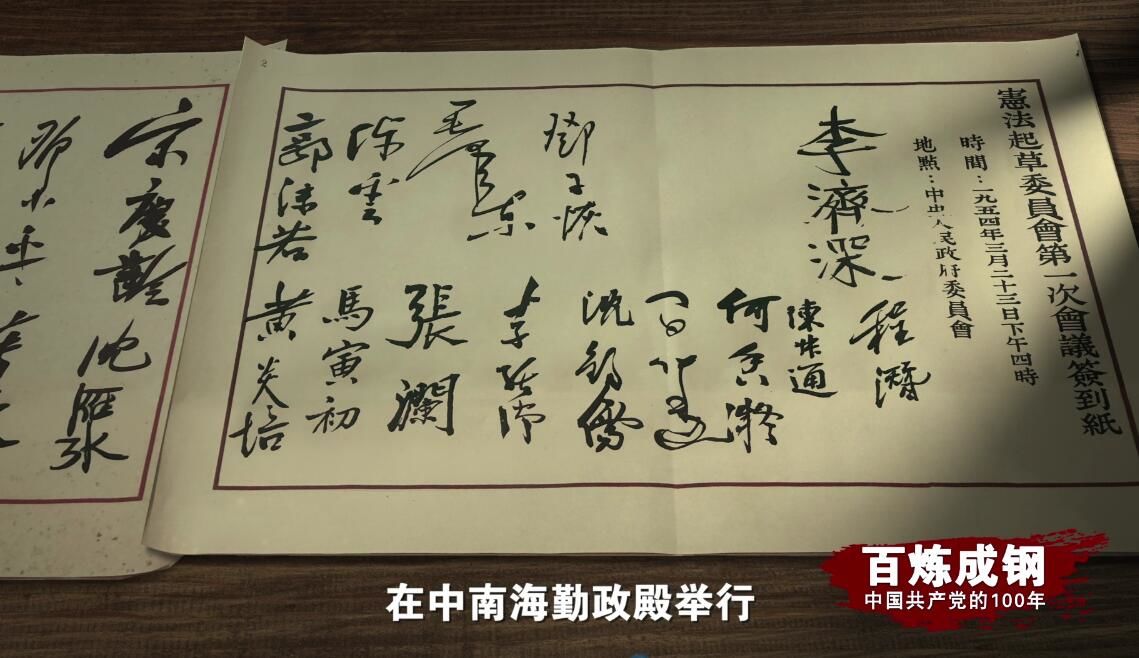 憲法起草委員會第一次會議簽到紙
時間：一九五四年三月二十三日下午四時
地點：中央人民政府委員會
李濟深
程潛
陳叔通
何香凝
鄧子恢
沈鈞儒
毛澤東
張瀾
陳雲
馬寅初
郭沫若
黃炎培
宋慶齡
沈雁冰
鄧小平
在中南海勤政殿举行
百炼成钢
中国共产党的100年